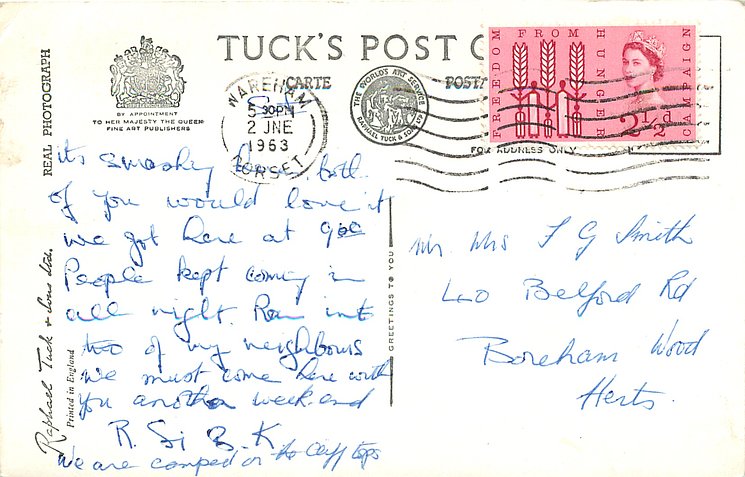 TUCK'S POST C
CARTE
POSTA
BY APPOINTMENT
TO HER MAJESTY THE QUEEN
FINE ART PUBLISHERS
WAREHAM
5 30PM
2 JNE
1963
DORSET
THE WORLD'S ART SERVICE
RAPHAEL TUCK & SONS LTD
FREEDOM FROM HUNGER CAMPAIGN
2½d
FOR ADDRESS ONLY
REAL PHOTOGRAPH
Raphael Tuck & Sons Ltd.
Printed in England
GREETINGS TO YOU
its smashing here, both
of you would love it
we got here at 9
People kept coming in
all night. Ran into
two of my neighbours
We must come here with
you another weekend
R. Si B. K
We are camped on the cliff tops
Mr Mrs F G Smith
40 Belford Rd
Boreham Wood
Herts.